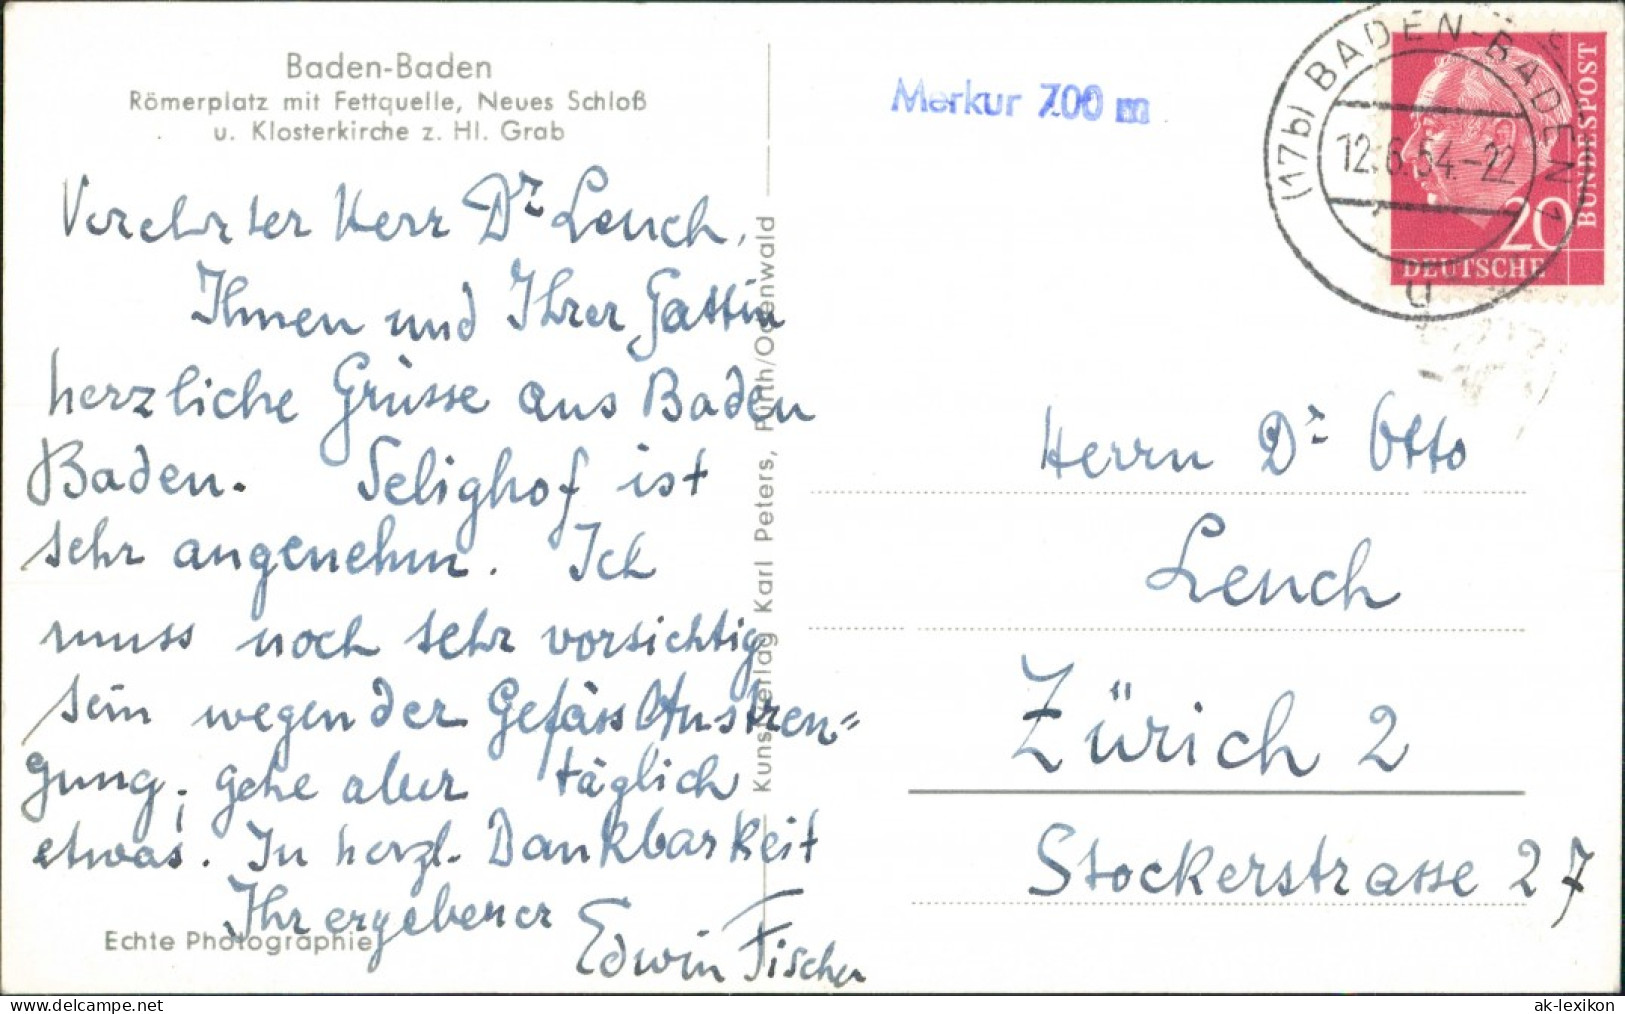 Baden-Baden
Römerplatz mit Fettquelle, Neues Schloß
u. Klosterkirche z. Hl. Grab
Verehrter Herr Dr Leuch,
Ihnen und Ihrer Gattin
herzliche Grüsse aus Baden
Baden. Selighof ist
sehr angenehm. Ich
muss noch sehr vorsichtig
sein wegen der Gefäss Anstren=
gung; gehe aber täglich
etwas. In herzl. Dankbarkeit
Ihr ergebener
Edwin Fischer
Echte Photographie
Kunstverlag Karl Peters, Fürth/Odenwald
Merkur 700 m
(17b) BADEN-BADEN 1
12.6.54.-22
u
20
DEUTSCHE
BUNDESPOST
Herrn Dr Otto
Leuch
Zürich 2
Stockerstrasse 27
delcampe.net
ak-lexikon